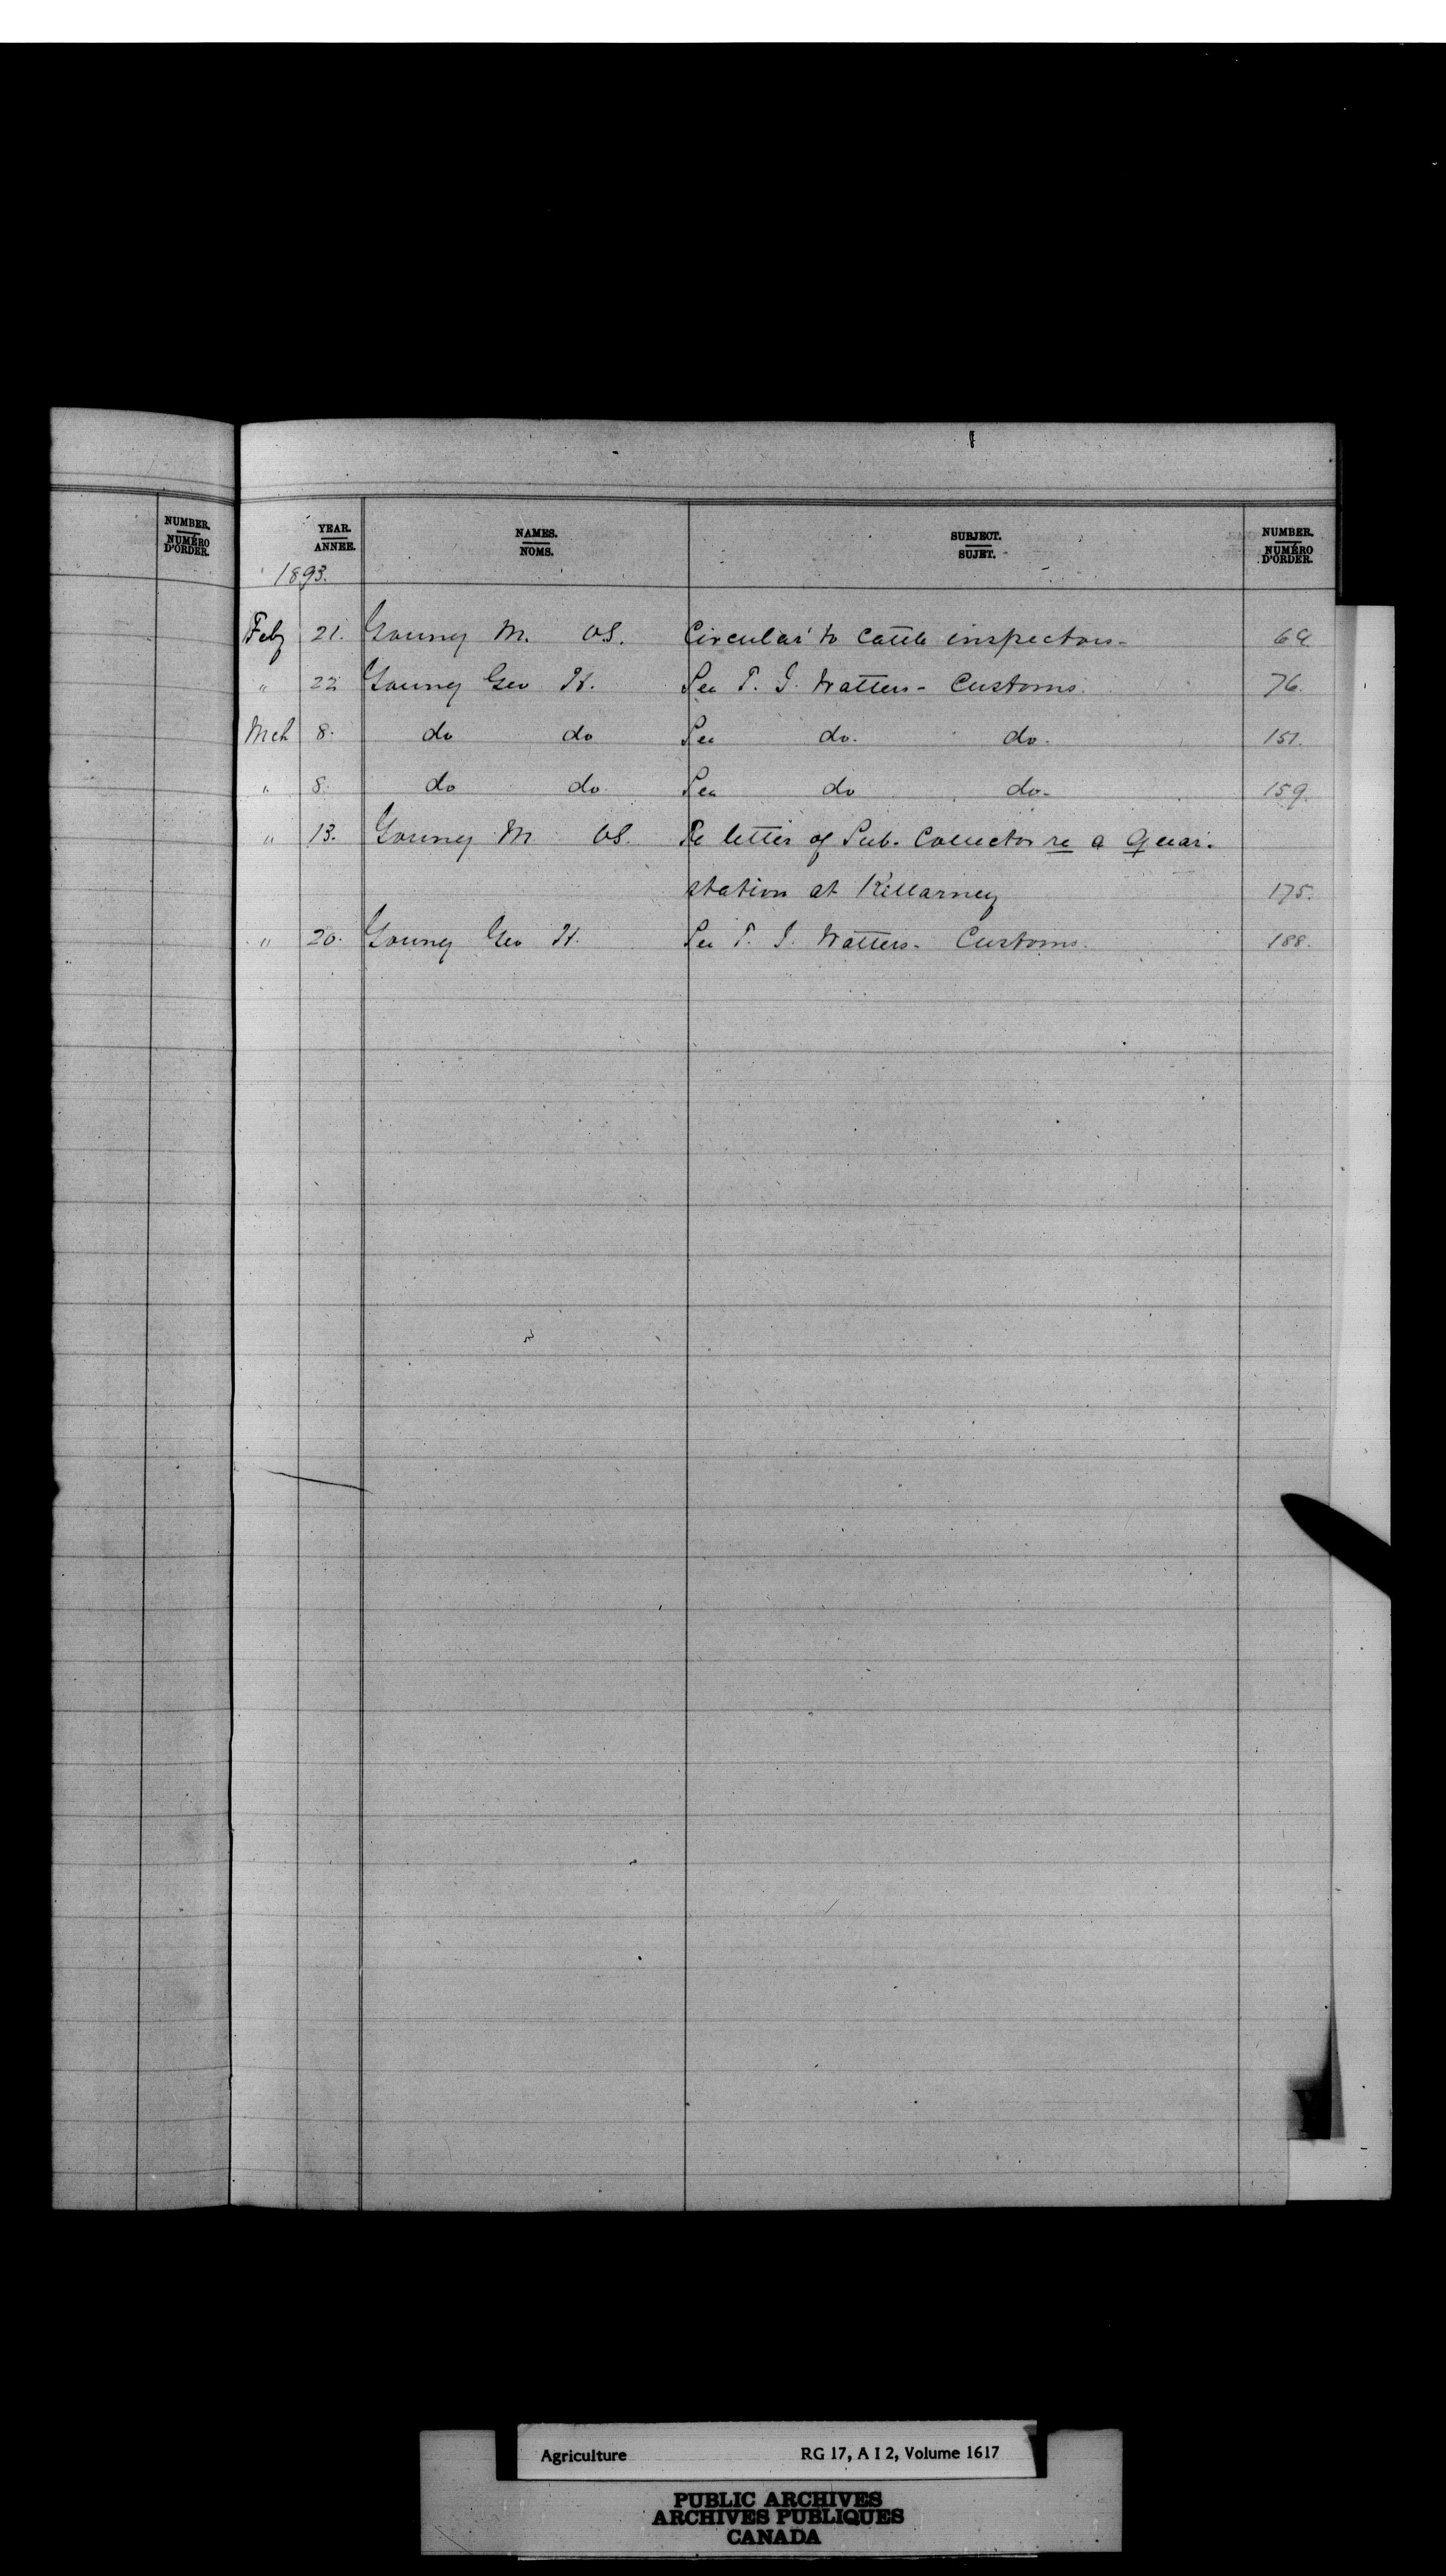 NUMBER.
NUMÉRO
D'ORDER.
YEAR.
ANNEE.
NAMES.
NOMS.
SUBJECT.
SUJET.
NUMBER.
NUMÉRO
D'ORDER.
1893.
Feby 21. Young M. VS. Circular to Cattle inspectors- 69.
" 22 Young Geo H. See T. J. Watters- Customs. 76.
Mch 8. do do See do. do. 151.
" 8. do do. See do do- 159.
" 13. Young M VS. Re letter of Sub. Collector re a Quar.
station at Killarney 175.
" 20. Young Geo H. See T. J. Watters- Customs. 188.
Agriculture RG 17, A I 2, Volume 1617
PUBLIC ARCHIVES
ARCHIVES PUBLIQUES
CANADA